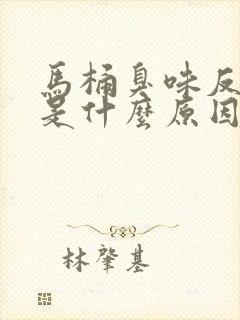 馬桶臭味反
是什麼原因
林肇基